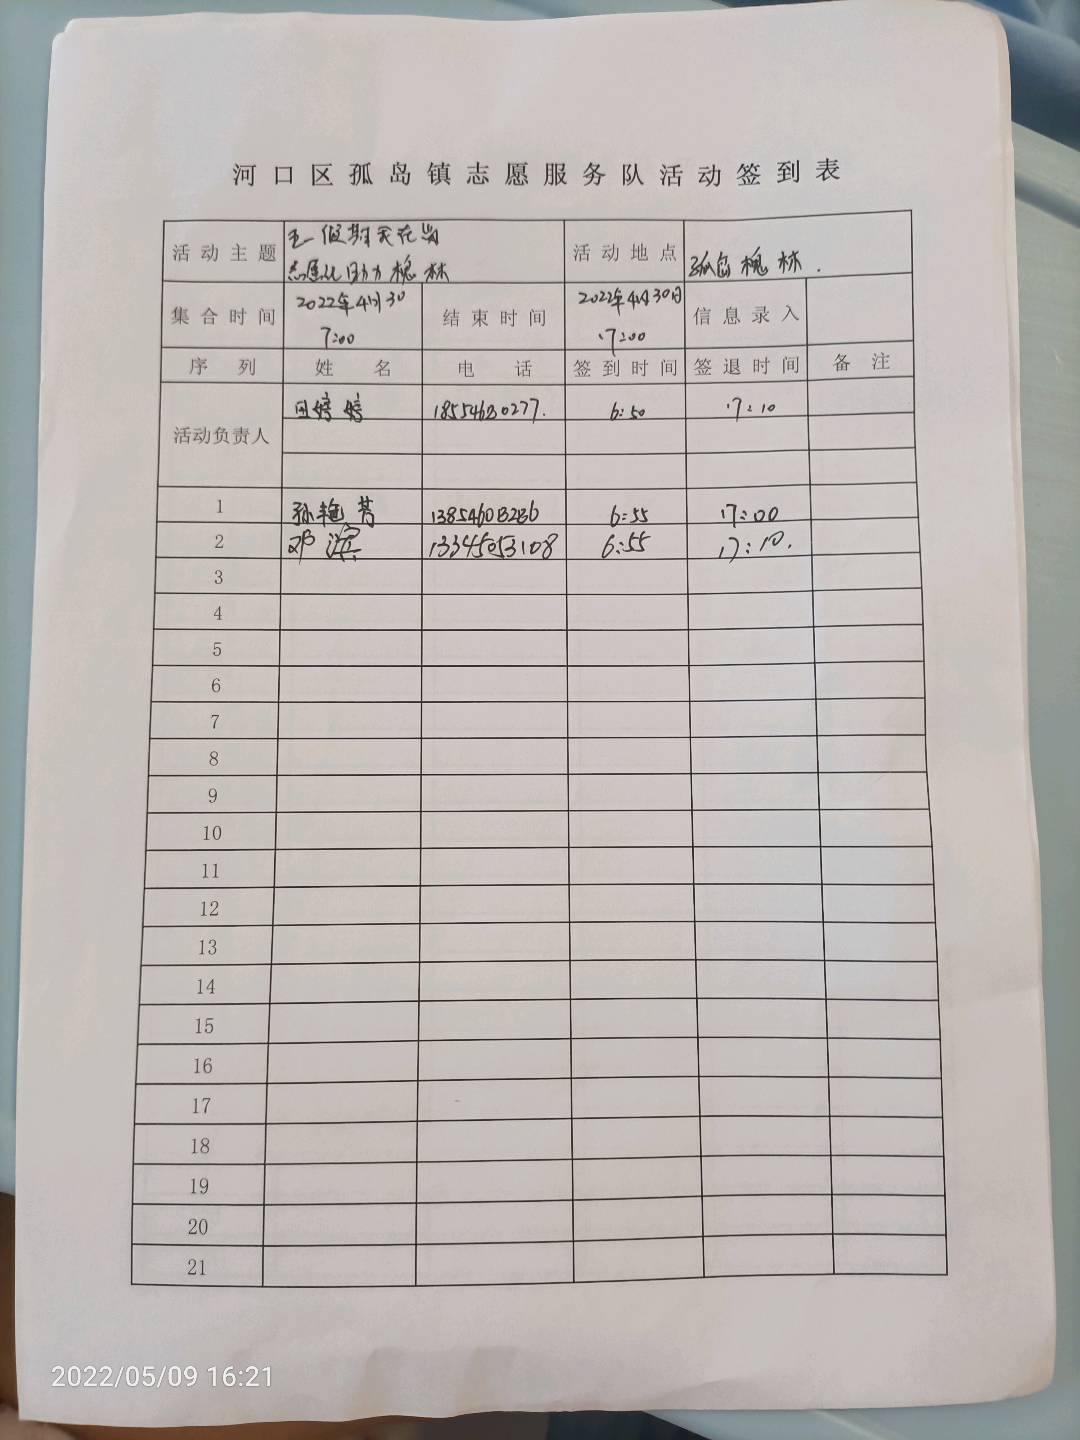 河口区孤岛镇志愿服务队活动签到表
活动主题 五一假期 活动地点 孤岛槐林.
助力槐林
集合时间 2022年4月30 结束时间 2022年4月30日 信息录入
7:00 17:00
序列 姓名 电话 签到时间 签退时间 备注
活动负责人 田婷婷 18554630277. 6:50 17:10
1 孙艳芳 6:55 17:00
2 邓滨 13345053108 6:55 17:10.
3
4
5
6
7
8
9
10
11
12
13
14
15
16
17
18
19
20
21
2022/05/09 16:21